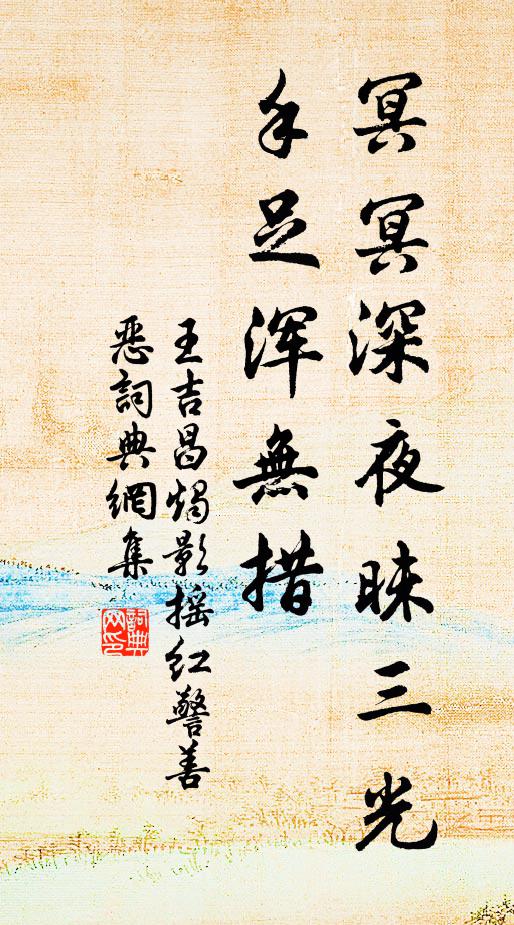 冥冥深夜昧三光
手足浑無措
王吉昌燭影摇红警善
惡詞典網集
詞典网印